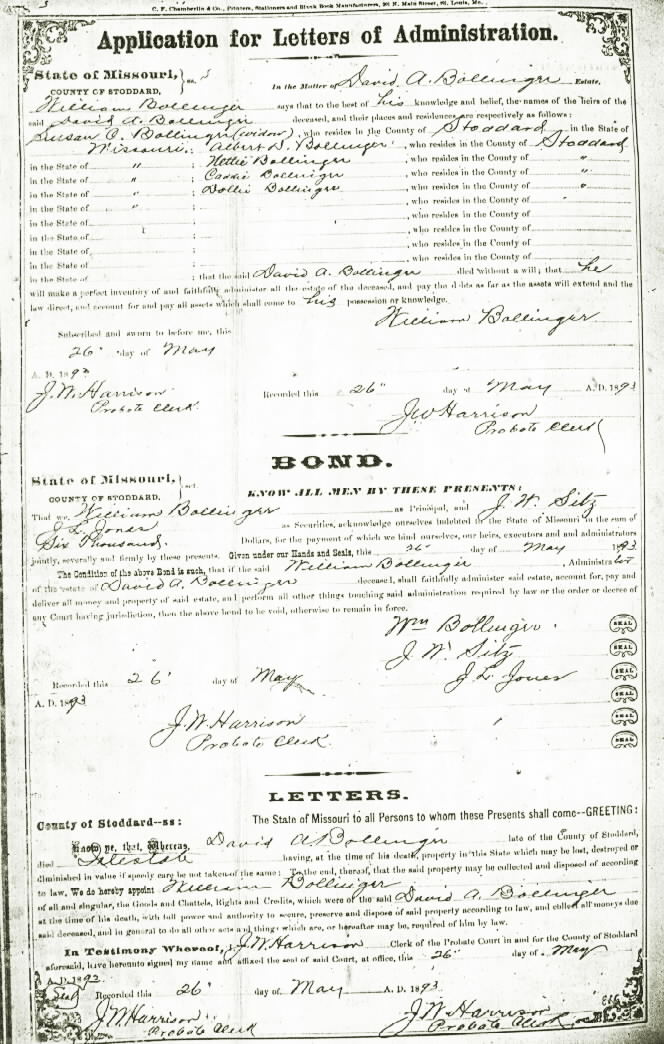 C. F. Chamberlin & Co., Printers, Stationers and Blank Book Manufacturers, N. Main Street, St. Louis, Mo.
Application for Letters of Administration.
State of Missouri, } ss.
COUNTY OF STODDARD.
In the Matter of David A. Bollinger Estate,
William Bollinger says that to the best of his knowledge and belief, the names of the heirs of the
said David A. Bollinger deceased, and their places and residences are respectively as follows:
Susan C. Bollinger (widow), who resides in the County of Stoddard in the State of
Missouri; Albert D. Bollinger, who resides in the County of Stoddard
in the State of " ; Nettie Bollinger, who resides in the County of "
in the State of " ; Caddie Bollinger, who resides in the County of "
in the State of " ; Dollie Bollinger, who resides in the County of "
in the State of " ; , who resides in the County of
in the State of ; , who resides in the County of
in the State of ; , who resides in the County of
in the State of ; , who resides in the County of
in the State of ; , who resides in the County of
in the State of ; that the said David A. Bollinger died without a will; that he
will make a perfect inventory of and faithfully administer all the estate of the deceased, and pay the debts as far as the assets will extend and the
law direct, and account for and pay all assets which shall come to his possession or knowledge.
William Bollinger
Subscribed and sworn to before me, this
26" day of May
A. D. 1893
J. W. Harrison
Probate Clerk.
Recorded this 26" day of May A. D. 1893
J W Harrison
Probate Clerk
BOND.
State of Missouri, } sct.
COUNTY OF STODDARD.
KNOW ALL MEN BY THESE PRESENTS:
That we, William Bollinger as Principal, and J. W. Sitz
J. L. Jones as Securities, acknowledge ourselves indebted to the State of Missouri in the sum of
Six Thousand. Dollars, for the payment of which we bind ourselves, our heirs, executors and and administrators
jointly, severally and firmly by these presents. Given under our Hands and Seals, this 26" day of May 1893
The Condition of the above Bond is such, that if the said William Bollinger, Administrator
of the estate of David A. Bollinger deceased, shall faithfully administer said estate, account for, pay and
deliver all money and property of said estate, and perform all other things touching said administration required by law or the order or decree of
any Court having jurisdiction, then the above bond to be void, otherwise to remain in force.
Wm Bollinger. SEAL
J. W. Sitz SEAL
J L Jones SEAL
SEAL
SEAL
SEAL
Recorded this 26' day of May
A. D. 1893
J. W. Harrison
Probate Clerk.
LETTERS.
County of Stoddard--ss:
The State of Missouri to all Persons to whom these Presents shall come--GREETING:
Know ye, that, Whereas, David A Bollinger late of the County of Stoddard,
died Intestate having, at the time of his death, property in this State which may be lost, destroyed or
diminished in value if speedy care be not taken of the same: To the end, thereof, that the said property may be collected and disposed of according
to law, We do hereby appoint William Bollinger
of all and singular, the Goods and Chattels, Rights and Credits, which were of the said David A. Bollinger
at the time of his death, with full power and authority to secure, preserve and dispose of said property according to law, and collect all moneys due
said deceased, and in general to do all other acts and things which are, or hereafter may be, required of him by law.
In Testimony Whereof, I, J. W. Harrison Clerk of the Probate Court in and for the County of Stoddard
aforesaid, have hereunto signed my name and affixed the seal of said Court, at office, this 26" day of May
A. D. 1893
Seal Recorded this 26' day of May A. D. 1893.
J. W. Harrison
Probate Clerk
J. W. Harrison
Probate Clerk